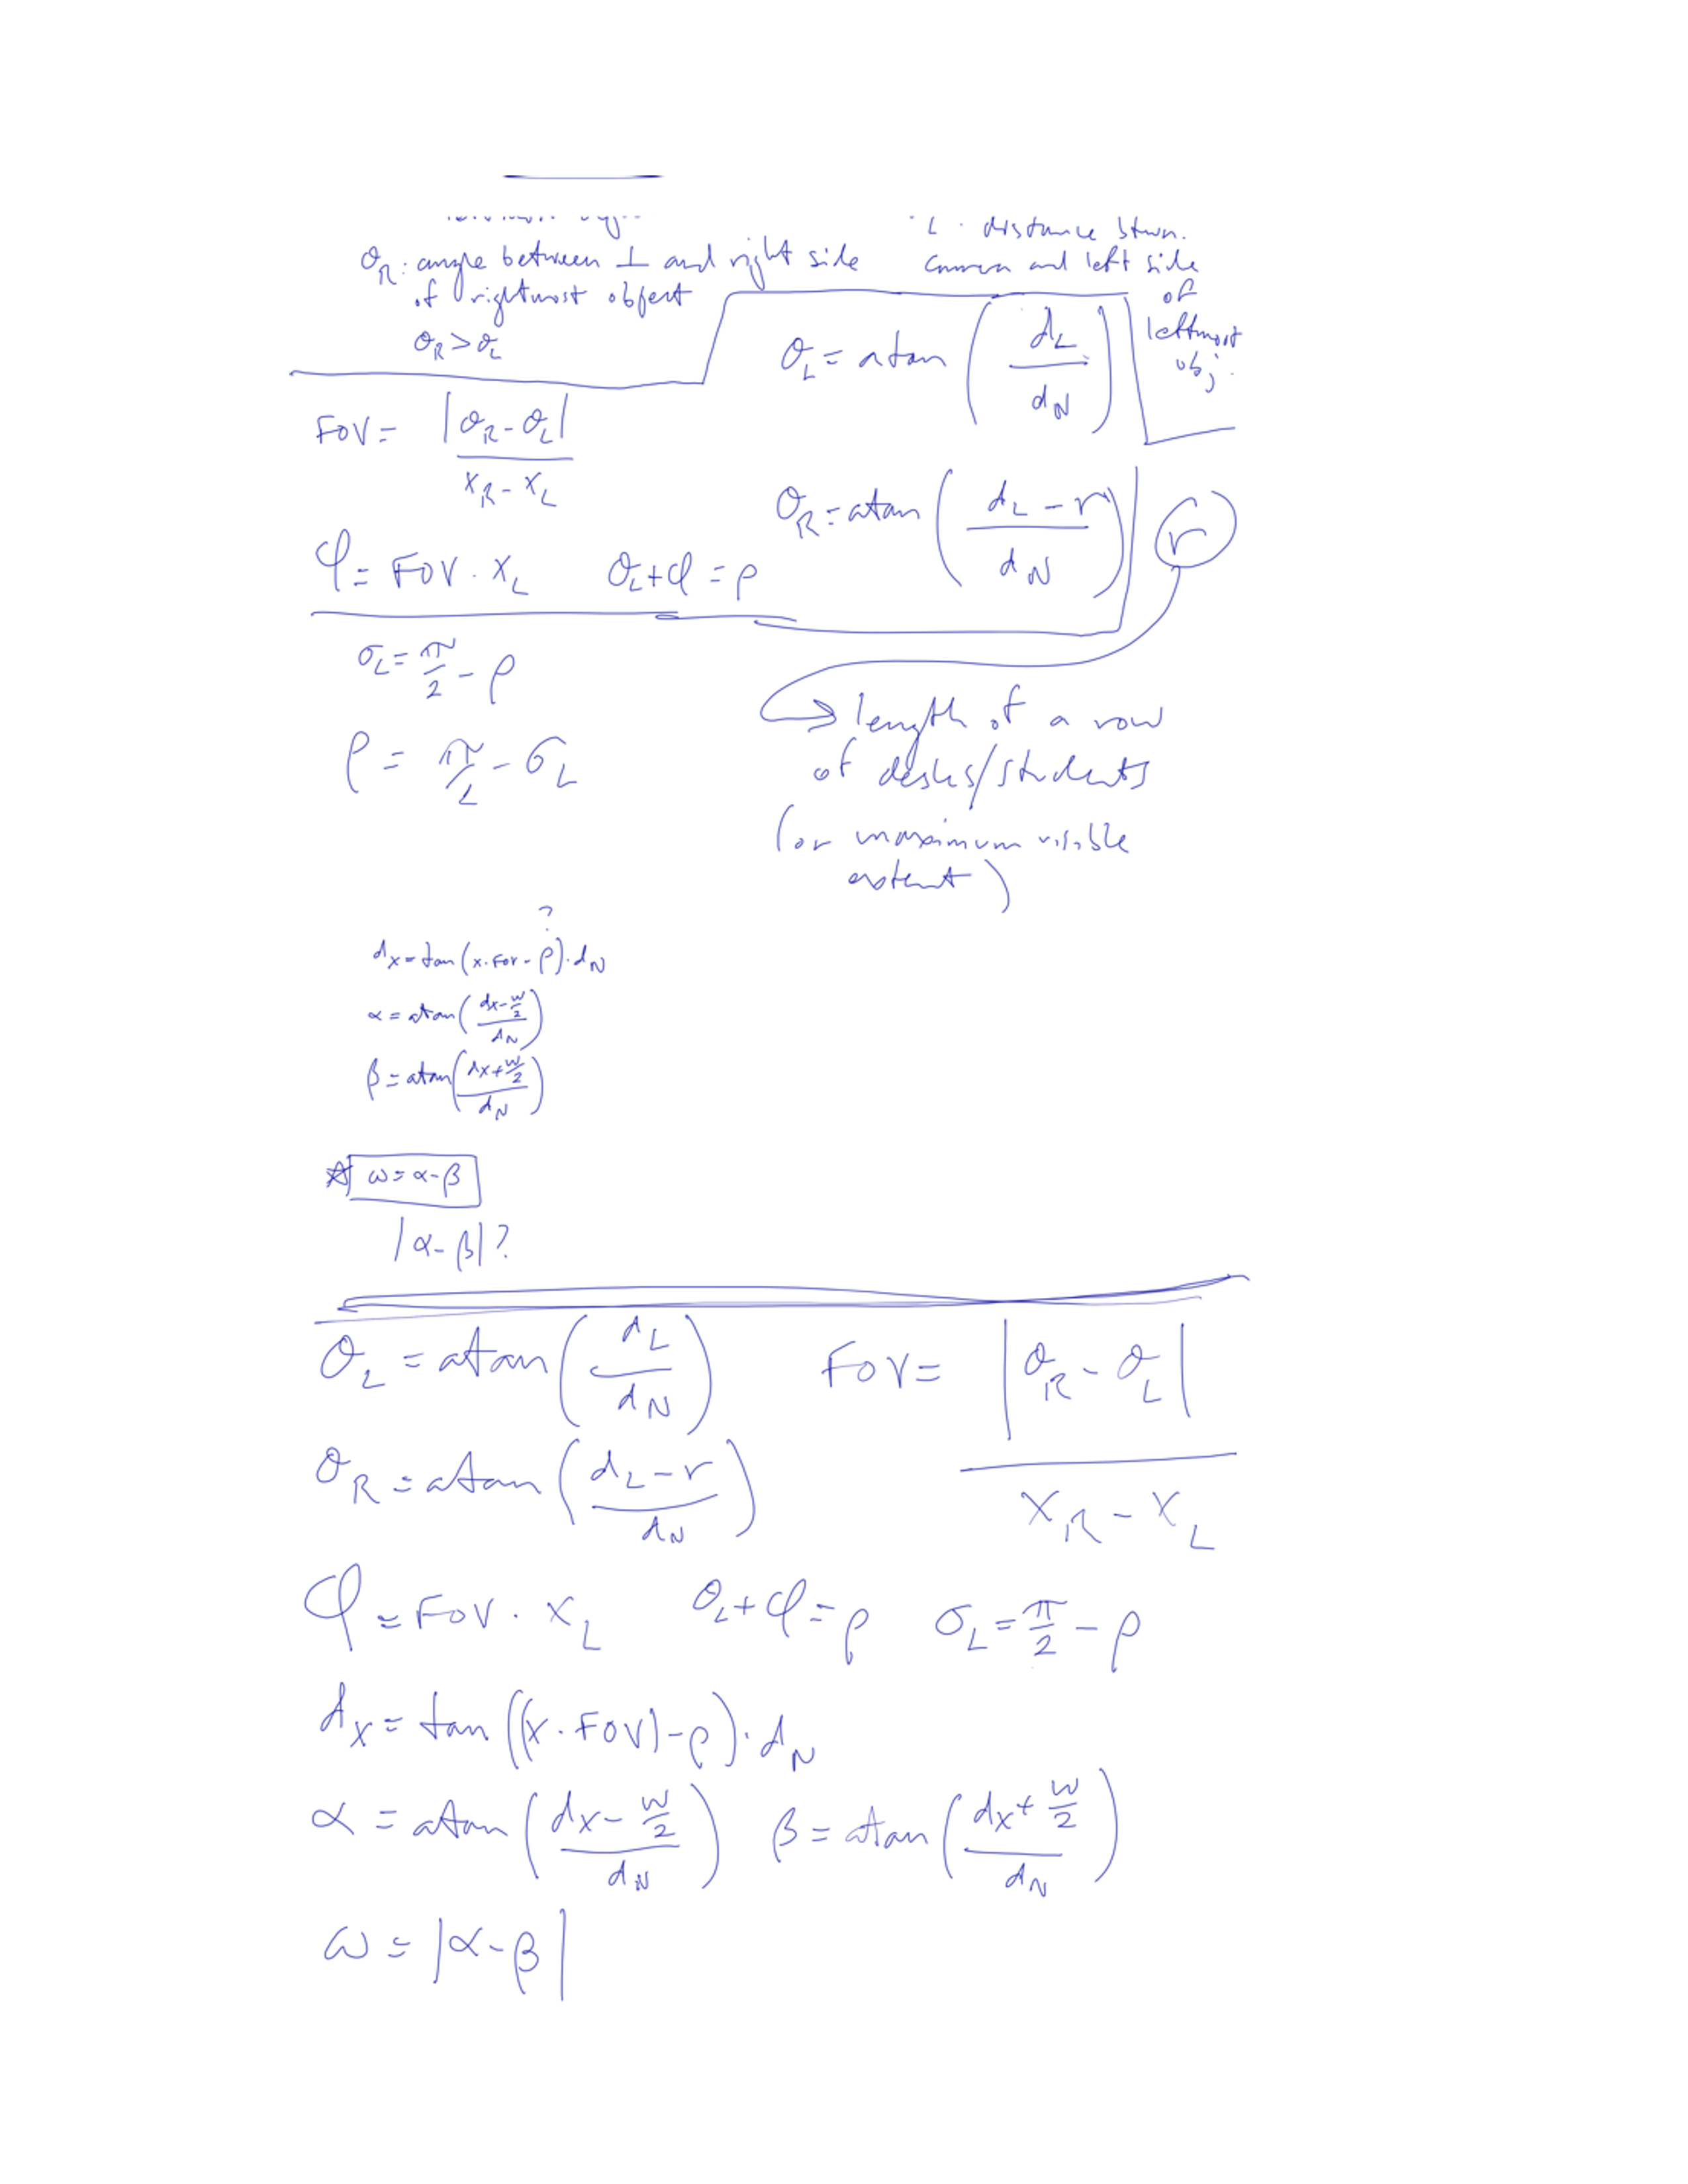 L : distance btwn.
θ_R : angle between ⊥ and right side
of rightmost object
θ_R > θ_L
camera and left side
of
leftmost
obj.
θ_L = atan (d_L / d_N)
FOV = |θ_R - θ_L| / (x_R - x_L)
θ_R = atan ((d_L - r) / d_N)
r
φ = FOV · x_L   θ_L + φ = ρ
σ_L = π/2 - ρ
→ length of a row
of desks/students
(or maximum visible
extent)
ρ = π/2 - σ_L
?
d_x = tan (x · FOV - ρ) · d_N
α = atan ((dx - w/2) / d_N)
β = atan ((dx + w/2) / d_N)
☆ ω = α - β
|α - β| ?
θ_L = atan (d_L / d_N)   FOV = |θ_R - θ_L| / (x_R - x_L)
θ_R = atan ((d_L - r) / d_N)
φ = FOV · x_L   θ_L + φ = ρ   σ_L = π/2 - ρ
d_x = tan ((x · FOV) - ρ) · d_N
α = atan ((dx - w/2) / d_N)   β = atan ((dx + w/2) / d_N)
ω = |α - β|